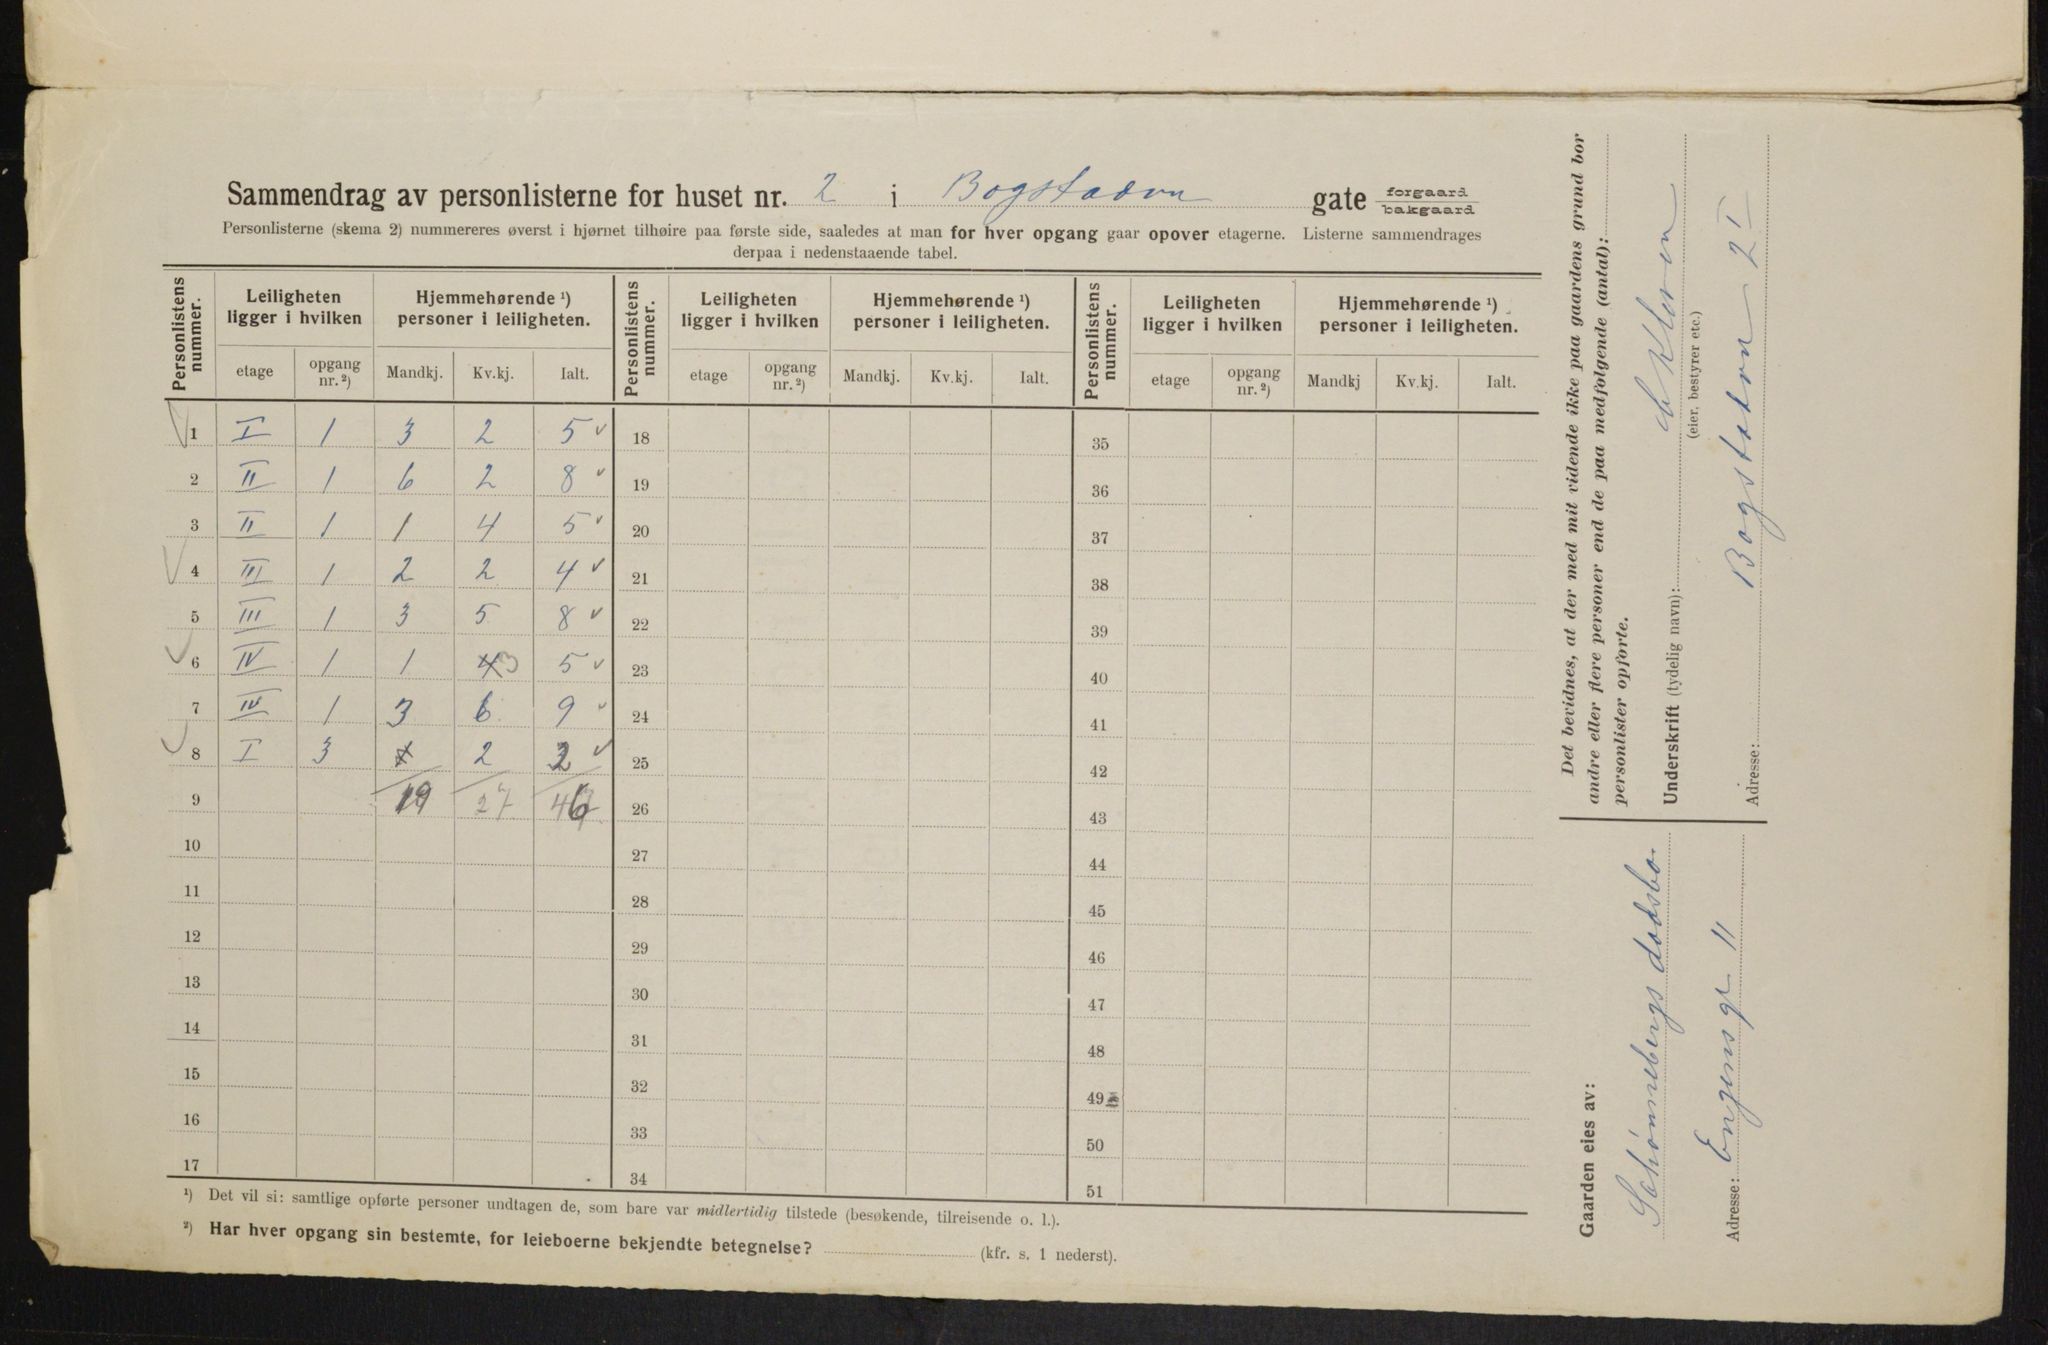 Sammendrag av personlisterne for huset nr. 2 i Bogstadvn gate forgaard bakgaard
Personlisterne (skema 2) nummereres øverst i hjørnet tilhøire paa første side, saaledes at man for hver opgang gaar opover etagerne. Listerne sammendrages
derpaa i nedenstaaende tabel.
Personlistens nummer. Leiligheten ligger i hvilken Hjemmehørende ¹) personer i leiligheten. Personlistens nummer. Leiligheten ligger i hvilken Hjemmehørende ¹) personer i leiligheten. Personlistens nummer. Leiligheten ligger i hvilken Hjemmehørende ¹) personer i leiligheten.
etage opgang nr. ²) Mandkj. Kv.kj. Ialt. etage opgang nr. ²) Mandkj. Kv.kj. Ialt. etage opgang nr. ²) Mandkj Kv.kj. Ialt.
1 I 1 3 2 5 18 35
2 II 1 6 2 8 19 36
3 II 1 1 4 5 20 37
4 III 1 2 2 4 21 38
5 III 1 3 5 8 22 39
6 IV 1 1 4 3 5 23 40
7 IV 1 3 6 9 24 41
8 I 3 2 2 25 42
9 19 27 46 26 43
10 27 44
11 28 45
12 29 46
13 30 47
14 31 48
15 32 49
16 33 50
17 34 51
¹) Det vil si: samtlige opførte personer undtagen de, som bare var midlertidig tilstede (besøkende, tilreisende o. l.).
²) Har hver opgang sin bestemte, for leieboerne bekjendte betegnelse? (kfr. s. 1 nederst).
Det bevidnes, at der med mit vidende ikke paa gaardens grund bor
andre eller flere personer end de paa medfølgende (antal):
personlister opførte.
Underskrift (tydelig navn):
(eier, bestyrer etc.)
Adresse: Bogstadvn 2 I
Gaarden eies av:
Schönnebergs dødsbo.
Adresse: Engensgt 11